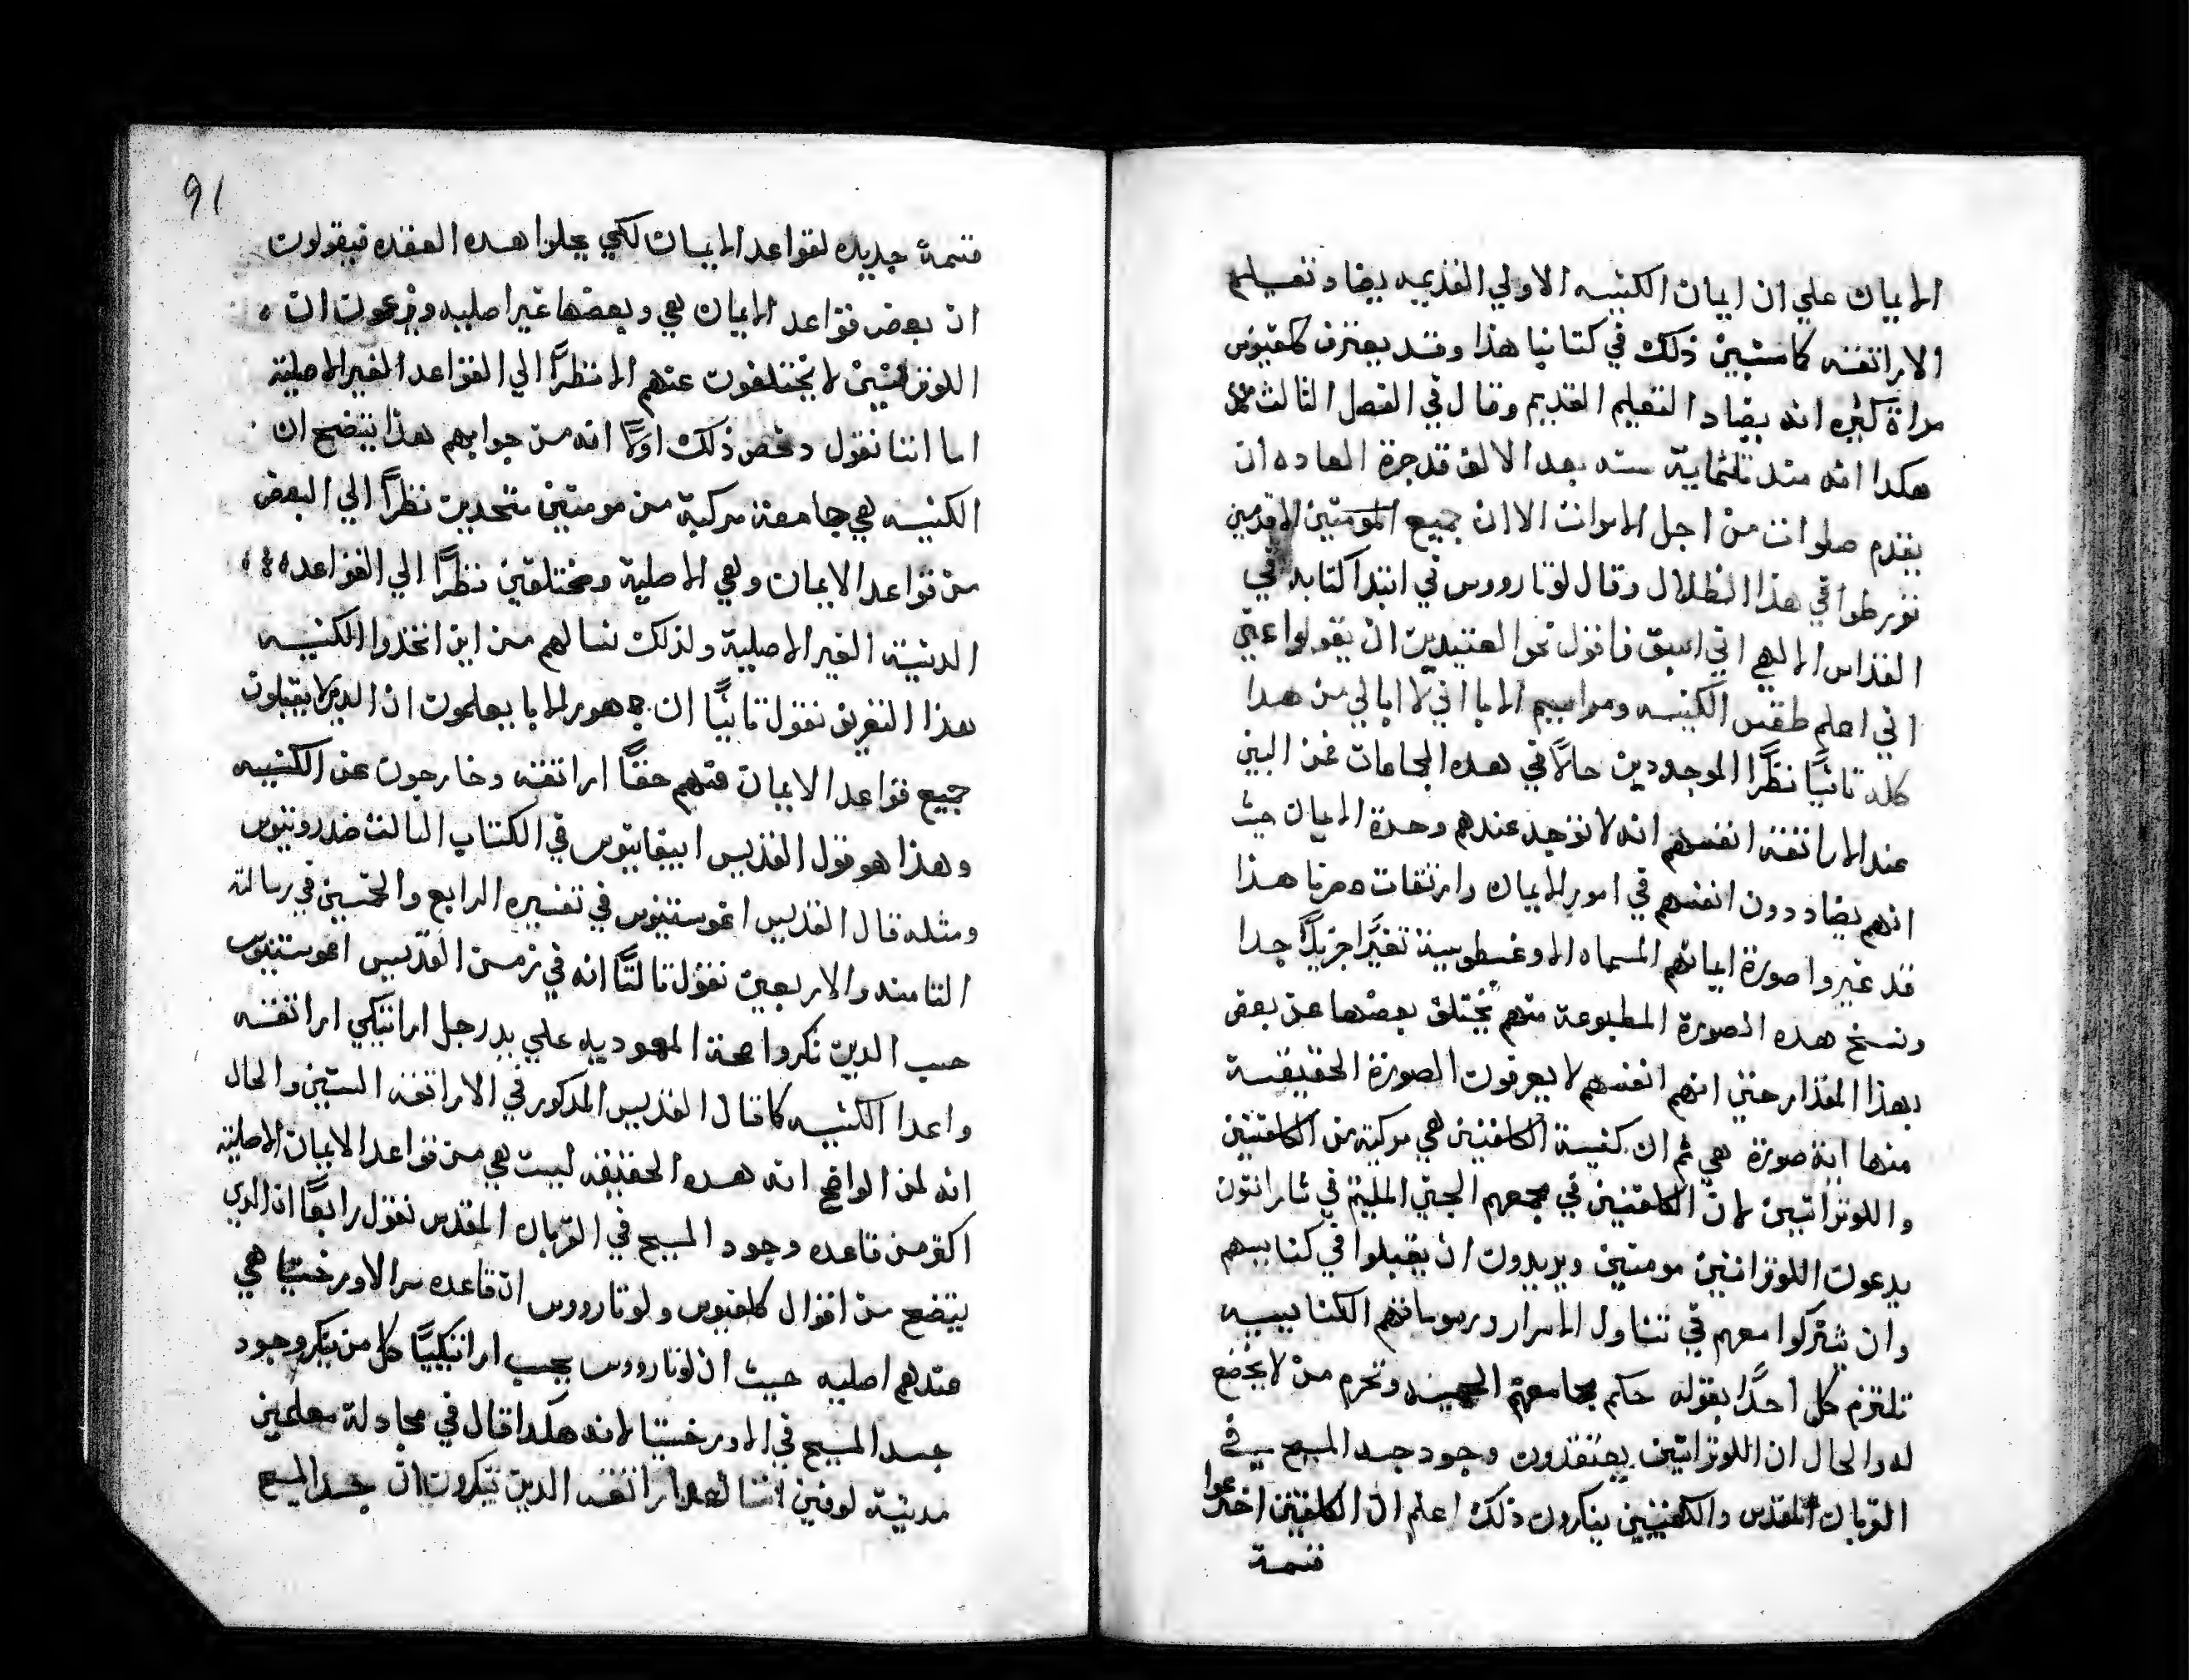 الايمان علي ان ايمان الكنيسه الاولي القديمه يضاد تعليم
الاراتقه كما سنبين ذلك في كتابنا هذا وقد يعترف كلفينوس
مراة كثيره انه يضاد التعليم القديم وقال في الفصل الثالث
هكدا انه مند ثلثماية سنه بعد الالف قد جرة العاده ان
يقدم صلوات من اجل الاموات الا ان جميع المومنين الاقدمين
تورطوا في هذا الظلال وقال لوتاروس في ابتدا كتابه في
القداس الالهي اني اسبق فاقول نحو العتيدين ان يقولوا عني
اني اعلم طقس الكنيسه ومراسيم البابا اني لا ابالي من هدا
كله ثانيًا نظرًا الموجودين حالًا في هده الجماعات فمن البين
عند الاراتقة انفسهم انه لا توجد عندهم وحدة الايمان حيث
انهم يضاددون انفسهم في امور الايمان وارتقات هم ربا هذا
قد غيروا صورة ايمانهم المسماه الاوغسطوسية تغيرًا جزيلًا جدا
ونسخ هده الصورة المطبوعة منهم تختلف بعضها عن بعض
بهذا المقدار حتي انهم انفسهم لا يعرفون الصورة الحقيقية
منها اية صورة هي ثم ان كنيسة الكلفنيين هي مركبة من الكلفنيين
واللوترانيين لان الكلفنيين في مجمعهم الجني الملييم في شارانتون
يدعون اللوترانيين مومنين ويريدون ان يقبلوا في كنايسهم
وان يشتركوا معهم في تناول الاسرار ورسوماتهم الكنايسيه
تلتزم كل احدًا بقوله حكم مجامعهم وتحرم من لا يخضع
له والحال ان اللوترانيين يعتقدون وجود جسد المسيح في
القربان المقدس والكلفنيين ينكرون ذلك اعلم ان الكلفنيين اخترعوا
قتمة
91
قتمة جديده لقواعد الايمان لكي يحلوا هده العقده فيقولون
ان بعض قواعد الايمان هي وبعضها غير اصليه ويزعمون ان
اللوترانيين لا يختلفون عنهم الا نظرًا الي القواعد الغير الاصلية
اما اننا نقول دحض ذلك اولًا انه من جوابهم هذا يتضح ان
الكنيسه هي جامعة مركبة من مومنين متحدين نظرًا الي البعض
من قواعد الايمان وهي الاصلية ومختلقين نظرًا الي القواعد
الدنيية الغير الاصلية ولذلك نسالهم من اين اتخذوا الكنيسه
هذا التعريف نقول ثانيًا ان جمهور الابا يعلمون ان الدين لا يقبلون
جميع قواعد الايمان فهم حقًا اراتقه وخارجون عن الكنيسه
وهذا هو قول القديس ابيفانيوس في الكتاب الثالث ضد روتيوس
ومثله قال القديس اغوستينوس في تفسيره الرابع والخمسين في رسالته
الثامنه والاربعين نقول ثالثًا انه في زمن القديس اغوستينوس
حسب الدين نكروا صحة المعوديه علي يد رجل اراتيكي اراتقه
واعدا الكنيسه كما قال القديس المدكور في الاراتقه الستين والحال
انه لمن الواضح انه هده الحقيقه ليست هي من قواعد الايمان الاصليه
اكثر من قاعده وجود المسيح في القربان المقدس نقول رابعًا ان الدي
يتضح من اقوال كلفنيوس ولوتاروس ان قاعده سر الاورخستيا هي
عندهم اصليه حيث ان لوتاروس يحسب اراتيكيًا كل من ينكر وجود
جسد المسيح في الاورخستيا لانه هكدا قال في مجادلة معلمين
مدينة لوفين اننا لهد اراتقه الدين ينكرون ان جسد المسيح